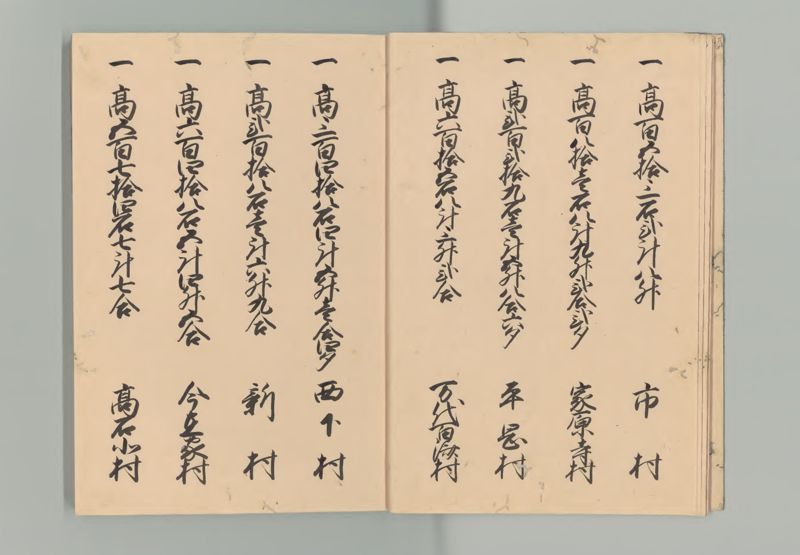 一 高百五拾三石弐斗八升 市村
一 高百八拾壱石八斗九升弐合弐夕 家原寺村
一 高弐百弐拾九石壱斗五升八合六夕 平岡村
一 高六百拾五石八斗六升弐合 万代百済村
一 高三百四拾八石四斗五升壱合四夕 西下村
一 高弐百拾八石壱斗六升九合 新村
一 高六百四拾八石五斗四升五合 今在家村
一 高五百七拾四石七斗七合 高石北村